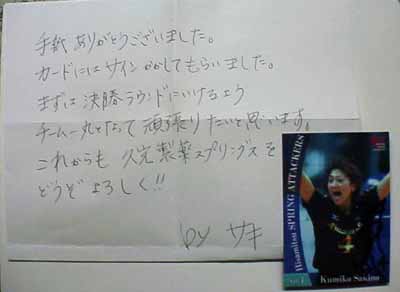 手紙ありがとうございました。
カードにはサインかかしてもらいました。
まずは決勝ラウンドにいけるよう
チーム一丸となって頑張りたいと思います。
これからも久光製薬スプリングスを
どうぞよろしく!!
by サキ
Hisamitsu SPRING ATTACKERS
No.1
Kumiko Sakino